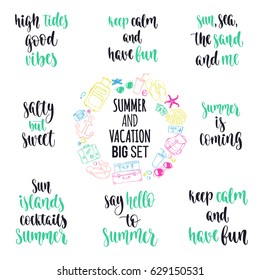 high Tides
good
vibes
keep calm
and
have fun
sun, sea,
the sand
and me
salty
but
sweet
SUMMER
AND
VACATION
BIG SET
Summer
is
coming
Sun
islands
cocktails
Summer
say hello
to
Summer
keep calm
and
have fun
shutterstock.com · 629150531